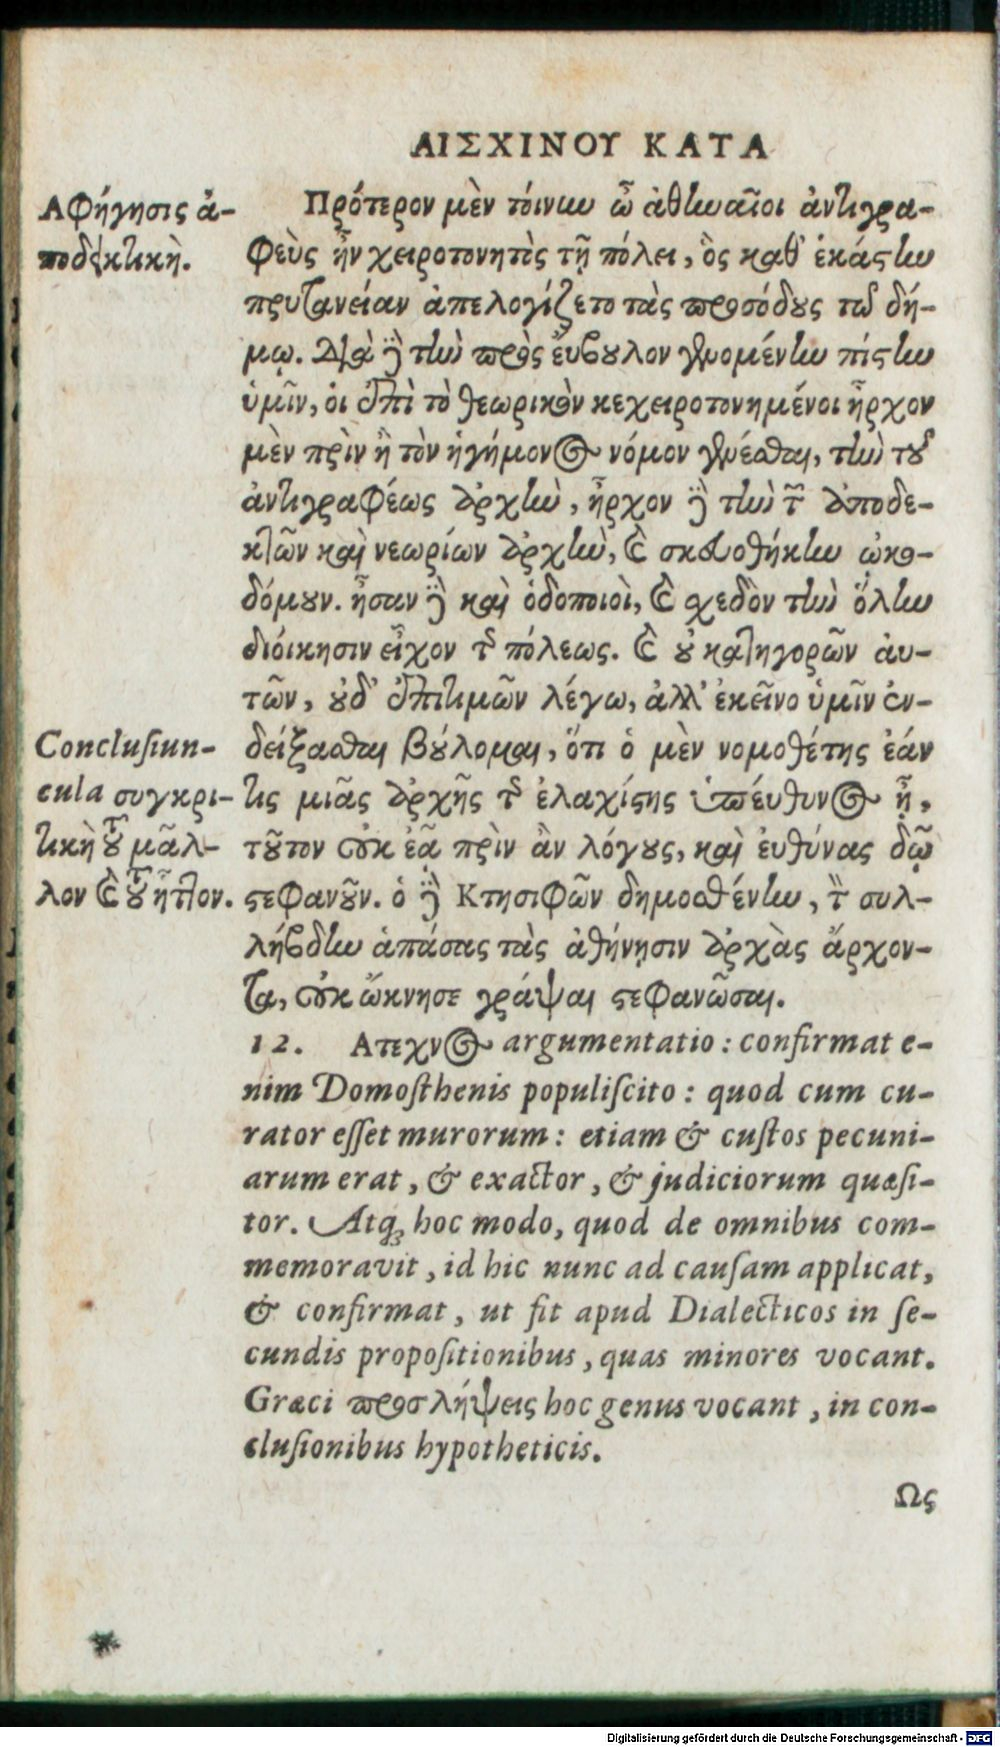 ΑΙΣΧΙΝΟΥ ΚΑΤΑ
Αφήγησις ἀ-
ποδεικτικὴ.
Πρότερον μὲν τοίνυν ὦ ἀθηναῖοι ἀντιγρα-
φεὺς ἦν χειροτονητὸς τῇ πόλει, ὃς καθ' ἑκάστην
πρυτανείαν ἀπελογίζετο τὰς προσόδους τῷ δή-
μῳ. Διὰ δὲ τὴν πρὸς ἔυβουλον γενομένην πίστιν
ὑμῖν, οἱ ἐπὶ τὸ θεωρικὸν κεχειροτονημένοι ἦρχον
μὲν πρὶν ἢ τὸν ἡγήμονος νόμον γενέσθαι, τὴν τοῦ
ἀντιγραφέως ἀρχὴν, ἦρχον δὲ τὴν τῶν ἀποδε-
κτῶν καὶ νεωρίων ἀρχὴν, καὶ σκευοθήκην ᾠκο-
δόμουν. ἦσαν δὲ καὶ ὁδοποιοὶ, καὶ σχεδὸν τὴν ὅλην
διόικησιν εἶχον τῆς πόλεως. καὶ οὐ κατηγορῶν ἀυ-
τῶν, οὐδ' ἐπιτιμῶν λέγω, ἀλλ' ἐκεῖνο ὑμῖν ἐν-
δείξασθαι βούλομαι, ὅτι ὁ μὲν νομοθέτης ἐάν
Conclusiun-
cula συγκρι-
τικὴ τοῦ μᾶλ-
λον καὶ τοῦ ἧττον.
τις μιᾶς ἀρχῆς τῆς ἐλαχίστης ὑπέυθυνος ᾖ,
τοῦτον οὐκ ἐᾷ πρὶν ἂν λόγους, καὶ ἐυθύνας δῷ
στεφανοῦν. ὁ δὲ Κτησιφῶν δημοσθένην, τὸν συλ-
λήβδην ἁπάσας τὰς ἀθήνῃσιν ἀρχὰς ἄρχον-
τα, οὐκ ὤκνησε γράψαι στεφανῶσαι.
12. Ατεχνος argumentatio: confirmat e-
nim Domosthenis populiscito: quod cum cu-
rator esset murorum: etiam & custos pecuni-
arum erat, & exactor, & judiciorum quæsi-
tor. Atq; hoc modo, quod de omnibus com-
memoravit, id hic nunc ad causam applicat,
& confirmat, ut fit apud Dialecticos in se-
cundis propositionibus, quas minores vocant.
Græci προσλήψεις hoc genus vocant, in con-
clusionibus hypotheticis.
Ως
Digitalisierung gefördert durch die Deutsche Forschungsgemeinschaft - DFG